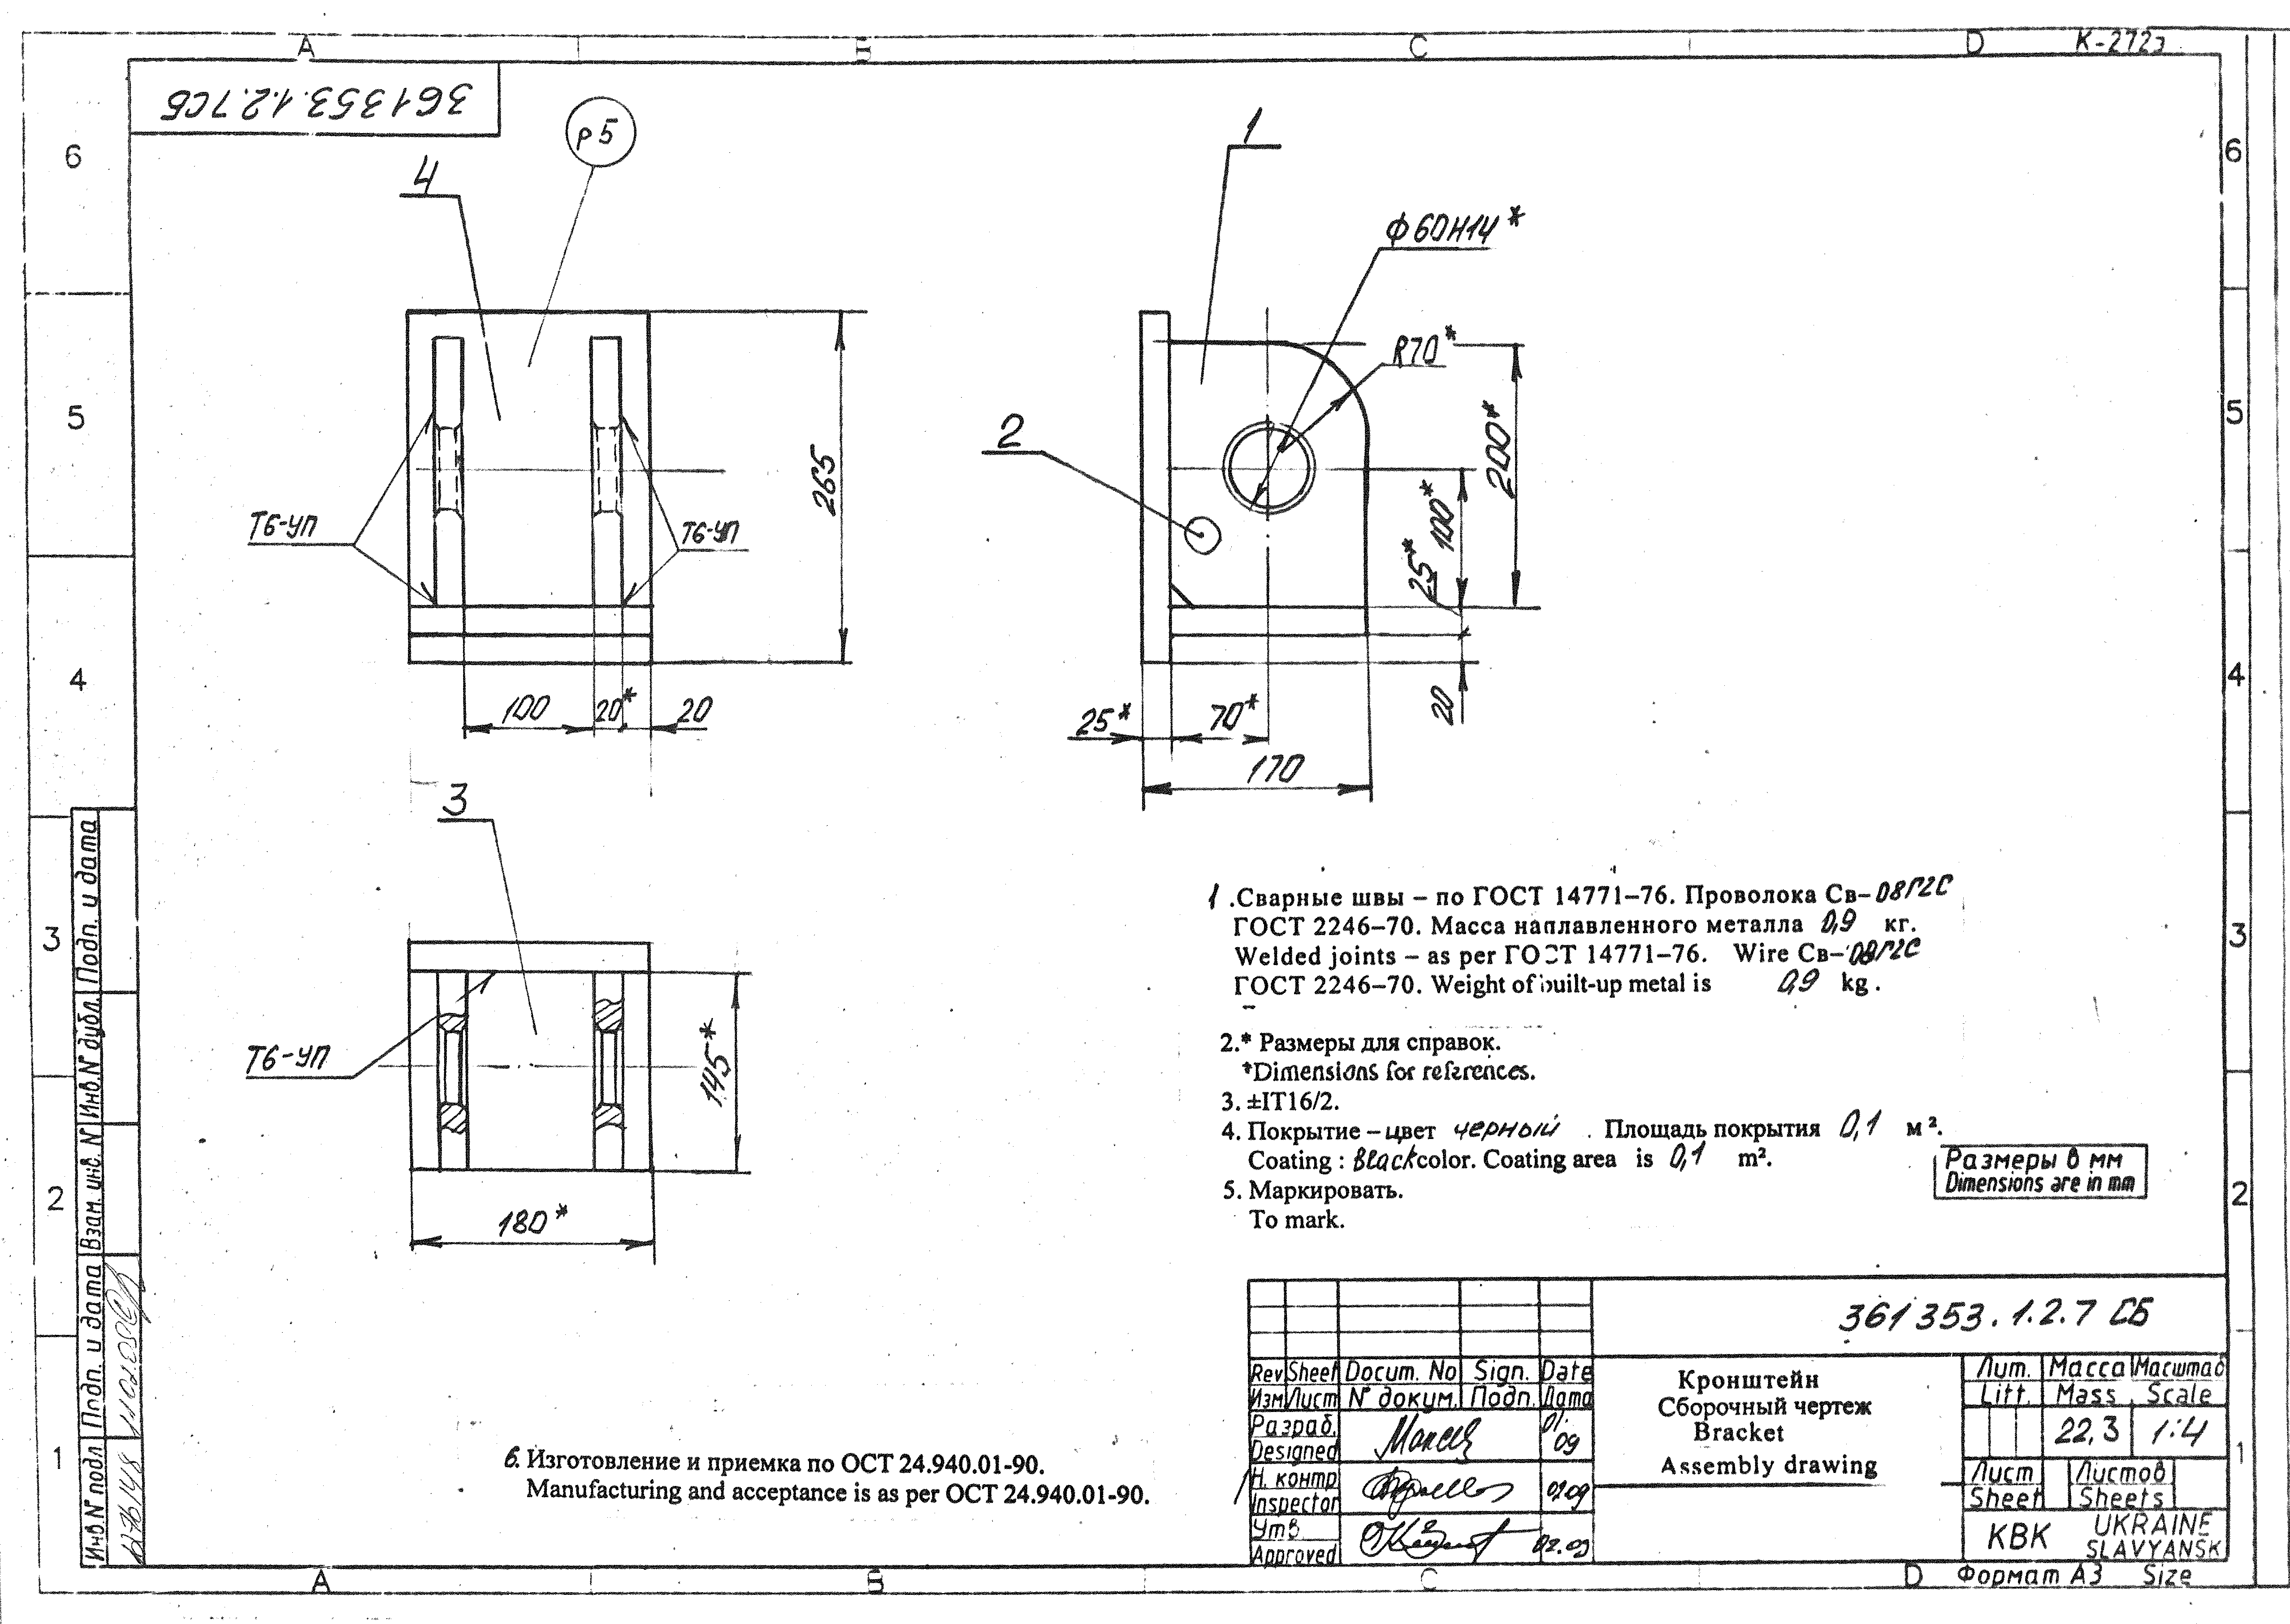 A B C D К-2723
361353.1.2.7СБ
р5
4
1
2
3
6
5
4
3
2
1
6
5
4
3
2
1
Ф60Н14*
R70*
200*
100*
25*
20
25*
70*
170
265
Т6-УП
Т6-УП
100
20*
20
Т6-УП
145*
180*
1.Сварные швы – по ГОСТ 14771–76. Проволока Св–08Г2С
ГОСТ 2246–70. Масса наплавленного металла 0,9 кг.
Welded joints – as per ГОСТ 14771–76. Wire Св–08Г2С
ГОСТ 2246–70. Weight of built-up metal is 0,9 kg.
2.* Размеры для справок.
*Dimensions for references.
3. ±IT16/2.
4. Покрытие – цвет черный . Площадь покрытия 0,1 м².
Coating : Black color. Coating area is 0,1 m².
5. Маркировать.
To mark.
Размеры в мм
Dimensions are in mm
6. Изготовление и приемка по ОСТ 24.940.01-90.
Manufacturing and acceptance is as per ОСТ 24.940.01-90.
Подп. и дата
Инв.N дубл.
Взам. инв. N
Подп. и дата
Инв.N подл
361353.1.2.7 СБ
Rev Sheet Docum. No Sign. Date
Изм Лист N докум. Подп. Дата
Разраб.
Designed
01.
09
Н. контр
Inspector
Утв.
Approved
02.09
Кронштейн
Сборочный чертеж
Bracket
Assembly drawing
Лит. Масса Масштаб
Litt. Mass Scale
22,3 1:4
Лист Листов
Sheet Sheets
КВК UKRAINE
SLAVYANSK
A B C D Формат А3 Size